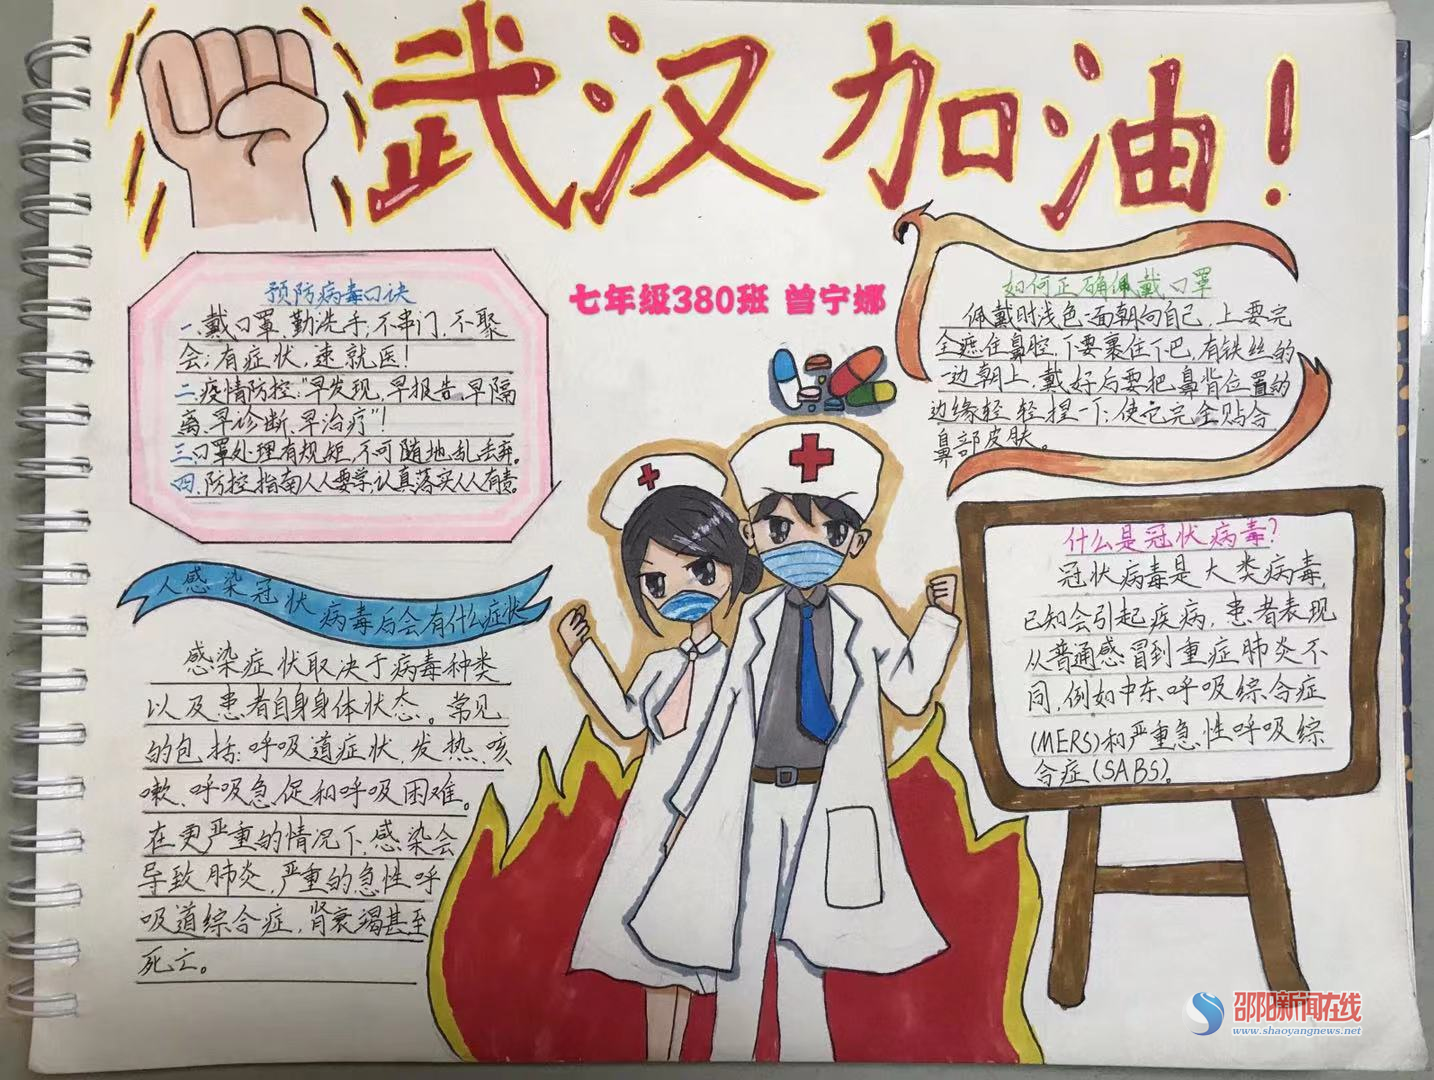 武汉加油!
七年级380班 曾宁娜
预防病毒口诀
一.戴口罩,勤洗手,不串门,不聚
会;有症状,速就医!
二.疫情防控:"早发现,早报告,早隔
离,早诊断,早治疗"!
三.口罩处理有规矩,不可随地乱丢弃。
四.防控指南人人要学,认真落实人人有责。
人感染冠状病毒后会有什么症状
感染症状取决于病毒种类
以及患者自身身体状态。常见
的包括:呼吸道症状,发热,咳
嗽,呼吸急促和呼吸困难。
在更严重的情况下,感染会
导致肺炎,严重的急性呼
吸道综合症,肾衰竭甚至
死亡。
如何正确佩戴口罩
佩戴时浅色面朝向自己,上要完
全遮住鼻腔,下要裹住下巴,有铁丝的
一边朝上,戴好后要把鼻背位置的
边缘轻轻捏一下,使它完全贴合
鼻部皮肤。
什么是冠状病毒?
冠状病毒是大类病毒,
已知会引起疾病,患者表现
从普通感冒到重症肺炎不
同,例如中东呼吸综合症
(MERS)和严重急性呼吸综
合症(SABS)。
邵阳新闻在线
www.shaoyangnews.net